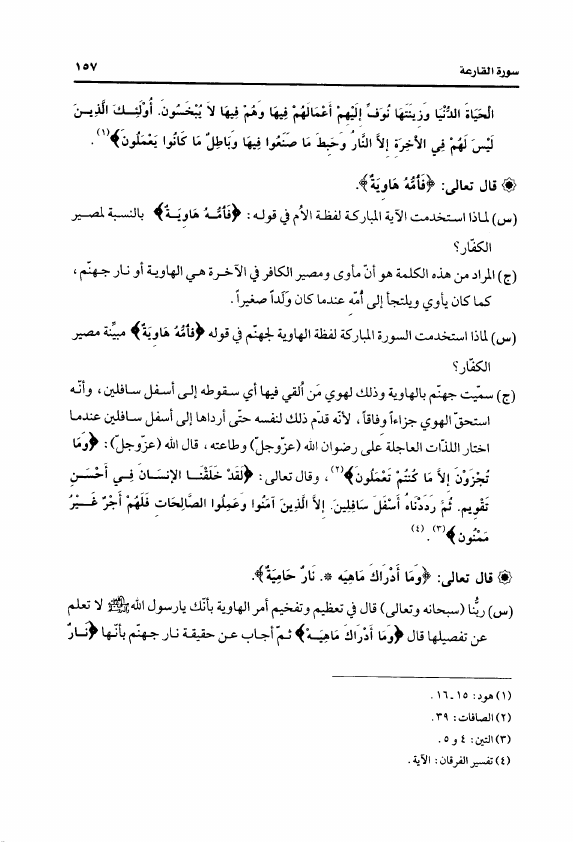 سورة القارعة ١٥٧
الْحَيَاةَ الدُّنْيَا وَزِينَتَهَا نُوَفِّ إِلَيْهِمْ أَعْمَالَهُمْ فِيهَا وَهُمْ فِيهَا لاَ يُبْخَسُونَ. أُوْلَئِـكَ الَّذِيـنَ
لَيْسَ لَهُمْ فِي الآخِرَةِ إِلاَّ النَّارُ وَحَبِطَ مَا صَنَعُوا فِيهَا وَبَاطِلٌ مَا كَانُوا يَعْمَلُونَ﴾(١).
۞ قال تعالى: ﴿فَأُمُّهُ هَاوِيَةٌ﴾.
(س) لماذا استخدمت الآية المباركة لفظة الأم في قوله: ﴿فَأُمُّـهُ هَاوِيَـةٌ﴾ بالنسبة لمصير
الكفّار؟
(ج) المراد من هذه الكلمة هو أنّ مأوى ومصير الكافر في الآخـرة هـي الهاوية أو نـار جهنّم،
كما كان يأوي ويلتجأ إلى أُمّه عندما كان وَلَداً صغيراً.
(س) لماذا استخدمت السورة المباركة لفظة الهاوية لجهنّم في قوله ﴿فأمُّهُ هَاوِيَةٌ﴾ مبيِّنة مصير
الكفّار؟
(ج) سمّيت جهنّم بالهاوية وذلك لهوي مَن أُلقي فيها أي سـقوطه إلـى أسـفل سـافلين، وأنّـه
استحقّ الهوي جزاءاً وفاقاً، لأنّه قدّم ذلك لنفسه حتّى أرداها إلى أسفل سافلين عندمـا
اختار اللذّات العاجلة عَلى رضوان الله (عزّوجلّ) وطاعته، قال الله (عزّوجلّ): ﴿وَمَا
تُجْزَوْنَ إِلاَّ مَا كُنتُمْ تَعْمَلُونَ﴾(٢)، وقال تعالى: ﴿لَقَدْ خَلَقْنَـا الإِنسَـانَ فِـي أَحْسَـنِ
تَقْوِيمٍ. ثُمَّ رَدَدْنَاهُ أَسْفَلَ سَافِلِينَ. إِلاَّ الَّذِينَ آمَنُوا وَعَمِلُوا الصَّالِحَاتِ فَلَهُمْ أَجْرٌ غَـيْرُ
مَمْنُونٍ﴾(٣).(٤)
۞ قال تعالى: ﴿وَمَا أَدْرَاكَ مَاهِيَه *. نَارٌ حَامِيَةٌ﴾.
(س) ربُّنا (سبحانه وتعالى) قال في تعظيم وتفخيم أمر الهاوية بأنّك يارسول الله ﷺ لا تعلم
عن تفصيلها قال ﴿وَمَا أَدْرَاكَ مَاهِيَـهْ﴾ ثـمّ أجاب عـن حقيقـة نـار جهنّـم بأنّـها ﴿نَـارٌ
(١) هود: ١٥ـ١٦.
(٢) الصافات: ٣٩.
(٣) التين: ٤ و ٥.
(٤) تفسير الفرقان: الآية.